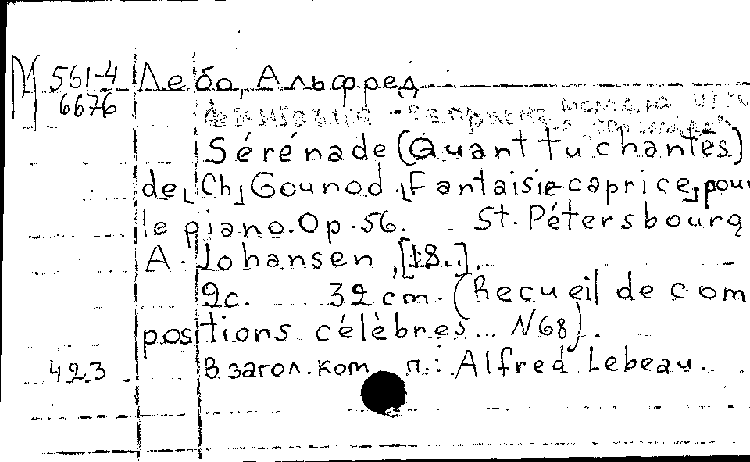 М 561-4 Лебо, Альфред
6676
Sérénade (Quant tu chantes)
de Ch. Gounod. Fantaisie-caprice pour
le piano. Op. 56. St. Pétersbourg
A. Johansen, [18..].
9c. 32 cm. (Recueil de com
positions célèbres... N68).
423 В загол. ком п.: Alfred Lebeau.